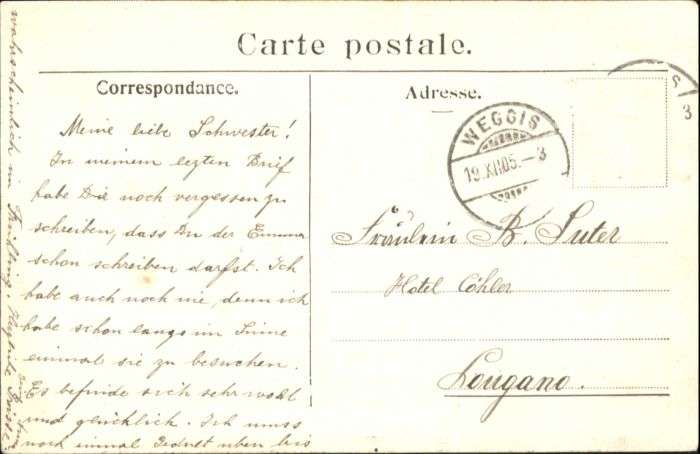 Carte postale.
Correspondance.
Meine liebe Schwester!
In meinem lezten Brief
habe Dir noch vergessen zu
schreiben, dass Du der Emma
schon schreiben darfst. Ich
habe auch noch nie, denn ich
habe schon lange im Sinne
einmal sie zu besuchen.
Es befinde sich sehr wohl
und glücklich. Ich muss
noch einmal uben bis
wahrscheinlich im Frühling.
Adresse.
WEGGIS
19.XII.05.–3
S
3
Fräulein B. Suter
Hotel Cöhler
Lougano.